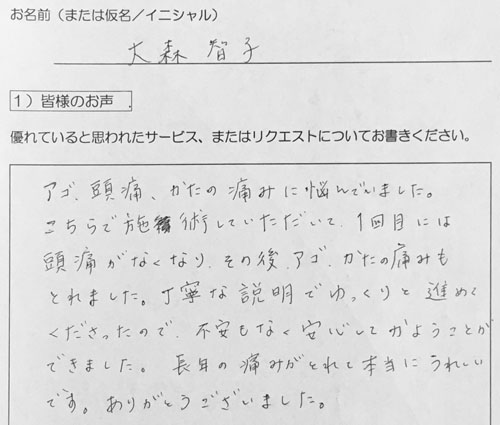 お名前（または仮名／イニシャル）
大森智子
1）皆様のお声
優れていると思われたサービス、またはリクエストについてお書きください。
アゴ、頭痛、かたの痛みに悩んでいました。
こちらで施術していただいて、1回目には
頭痛がなくなり、その後、アゴ、かたの痛みも
とれました。丁寧な説明でゆっくりと進めて
くださったので、不安もなく安心してかようことが
できました。長年の痛みがとれて本当にうれしい
です。ありがとうございました。